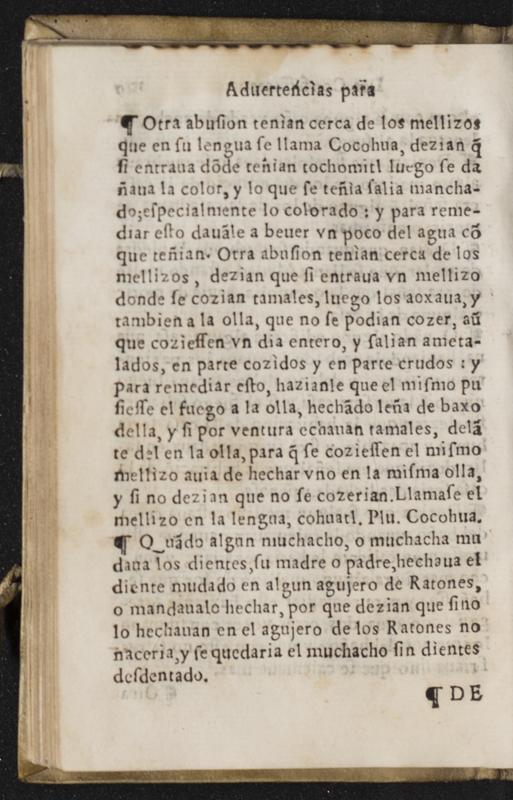 Aduertencìas para
¶ Otra abuſion tenìan cerca de los mellizos
que en ſu lengua ſe llama Cocohua, dezian q̃
ſi entraua dõde teñian tochomitl luego ſe da
ñaua la color, y lo que ſe teñìa ſalia mancha-
do; eſpecialmente lo colorado: y para reme-
diar eſto dauãle a beuer vn poco del agua cõ
que teñian. Otra abuſion tenìan cerca de los
mellizos, dezian que ſi entraua vn mellizo
donde ſe cozian tamales, luego los aoxaua, y
tambien a la olla, que no ſe podian cozer, aũ
que cozìeſſen vn dia entero, y ſalìan ameta-
lados, en parte cozìdos y en parte crudos: y
para remediar eſto, hazianle que el miſmo pu
ſieſſe el fuego a la olla, hechãdo leña de baxo
della, y ſi por ventura echauan tamales, delã
te del en la olla, para q̃ ſe cozieſſen el miſmo
mellìzo auia de hechar vno en la miſma olla,
y ſi no dezian que no ſe cozerian. Llamaſe el
mellizo en la lengua, cohuatl. Plu. Cocohua.
¶ Quãdo algun muchacho, o muchacha mu
daua los dientes, ſu madre o padre, hechaua el
diente mudado en algun agujero de Ratones,
o mandaualo hechar, por que dezian que ſino
lo hechauan en el agujero de los Ratones no
naceria, y ſe quedaria el muchacho ſin dientes
deſdentado.
¶ DE